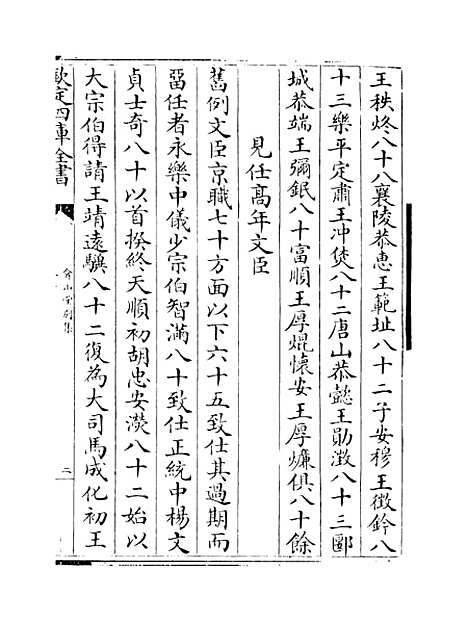 王秩炵八十八襄陵恭惠王範址八十二子安穆王徵鈐八
十三樂平定肅王冲烋八十二唐山恭懿王勛澂八十三郾
城恭端王彌鋃八十富順王厚焜懷安王厚熑俱八十餘
見任髙年文臣
舊例文臣京職七十方面以下六十五致仕其過期而
畱任者永樂中儀少宗伯智滿八十致仕正統中楊文
貞士奇八十以首揆終天順初胡忠安濙八十二始以
大宗伯得請王靖遠驥八十二復為大司馬成化初王
欽定四庫全書
弇山堂别集
二